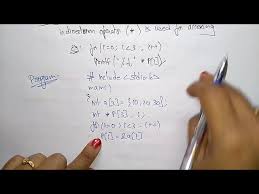 indirection operator (*) is used for accessing
for (i=0; i<3; i++)
printf("%d", *P[i]);
Program:
# include<stdio.h>
main()
{
int a[3] = {10, 20, 30};
int *P[3], i;
for(i=0; i<3; i++)
P[i] = &a[i]